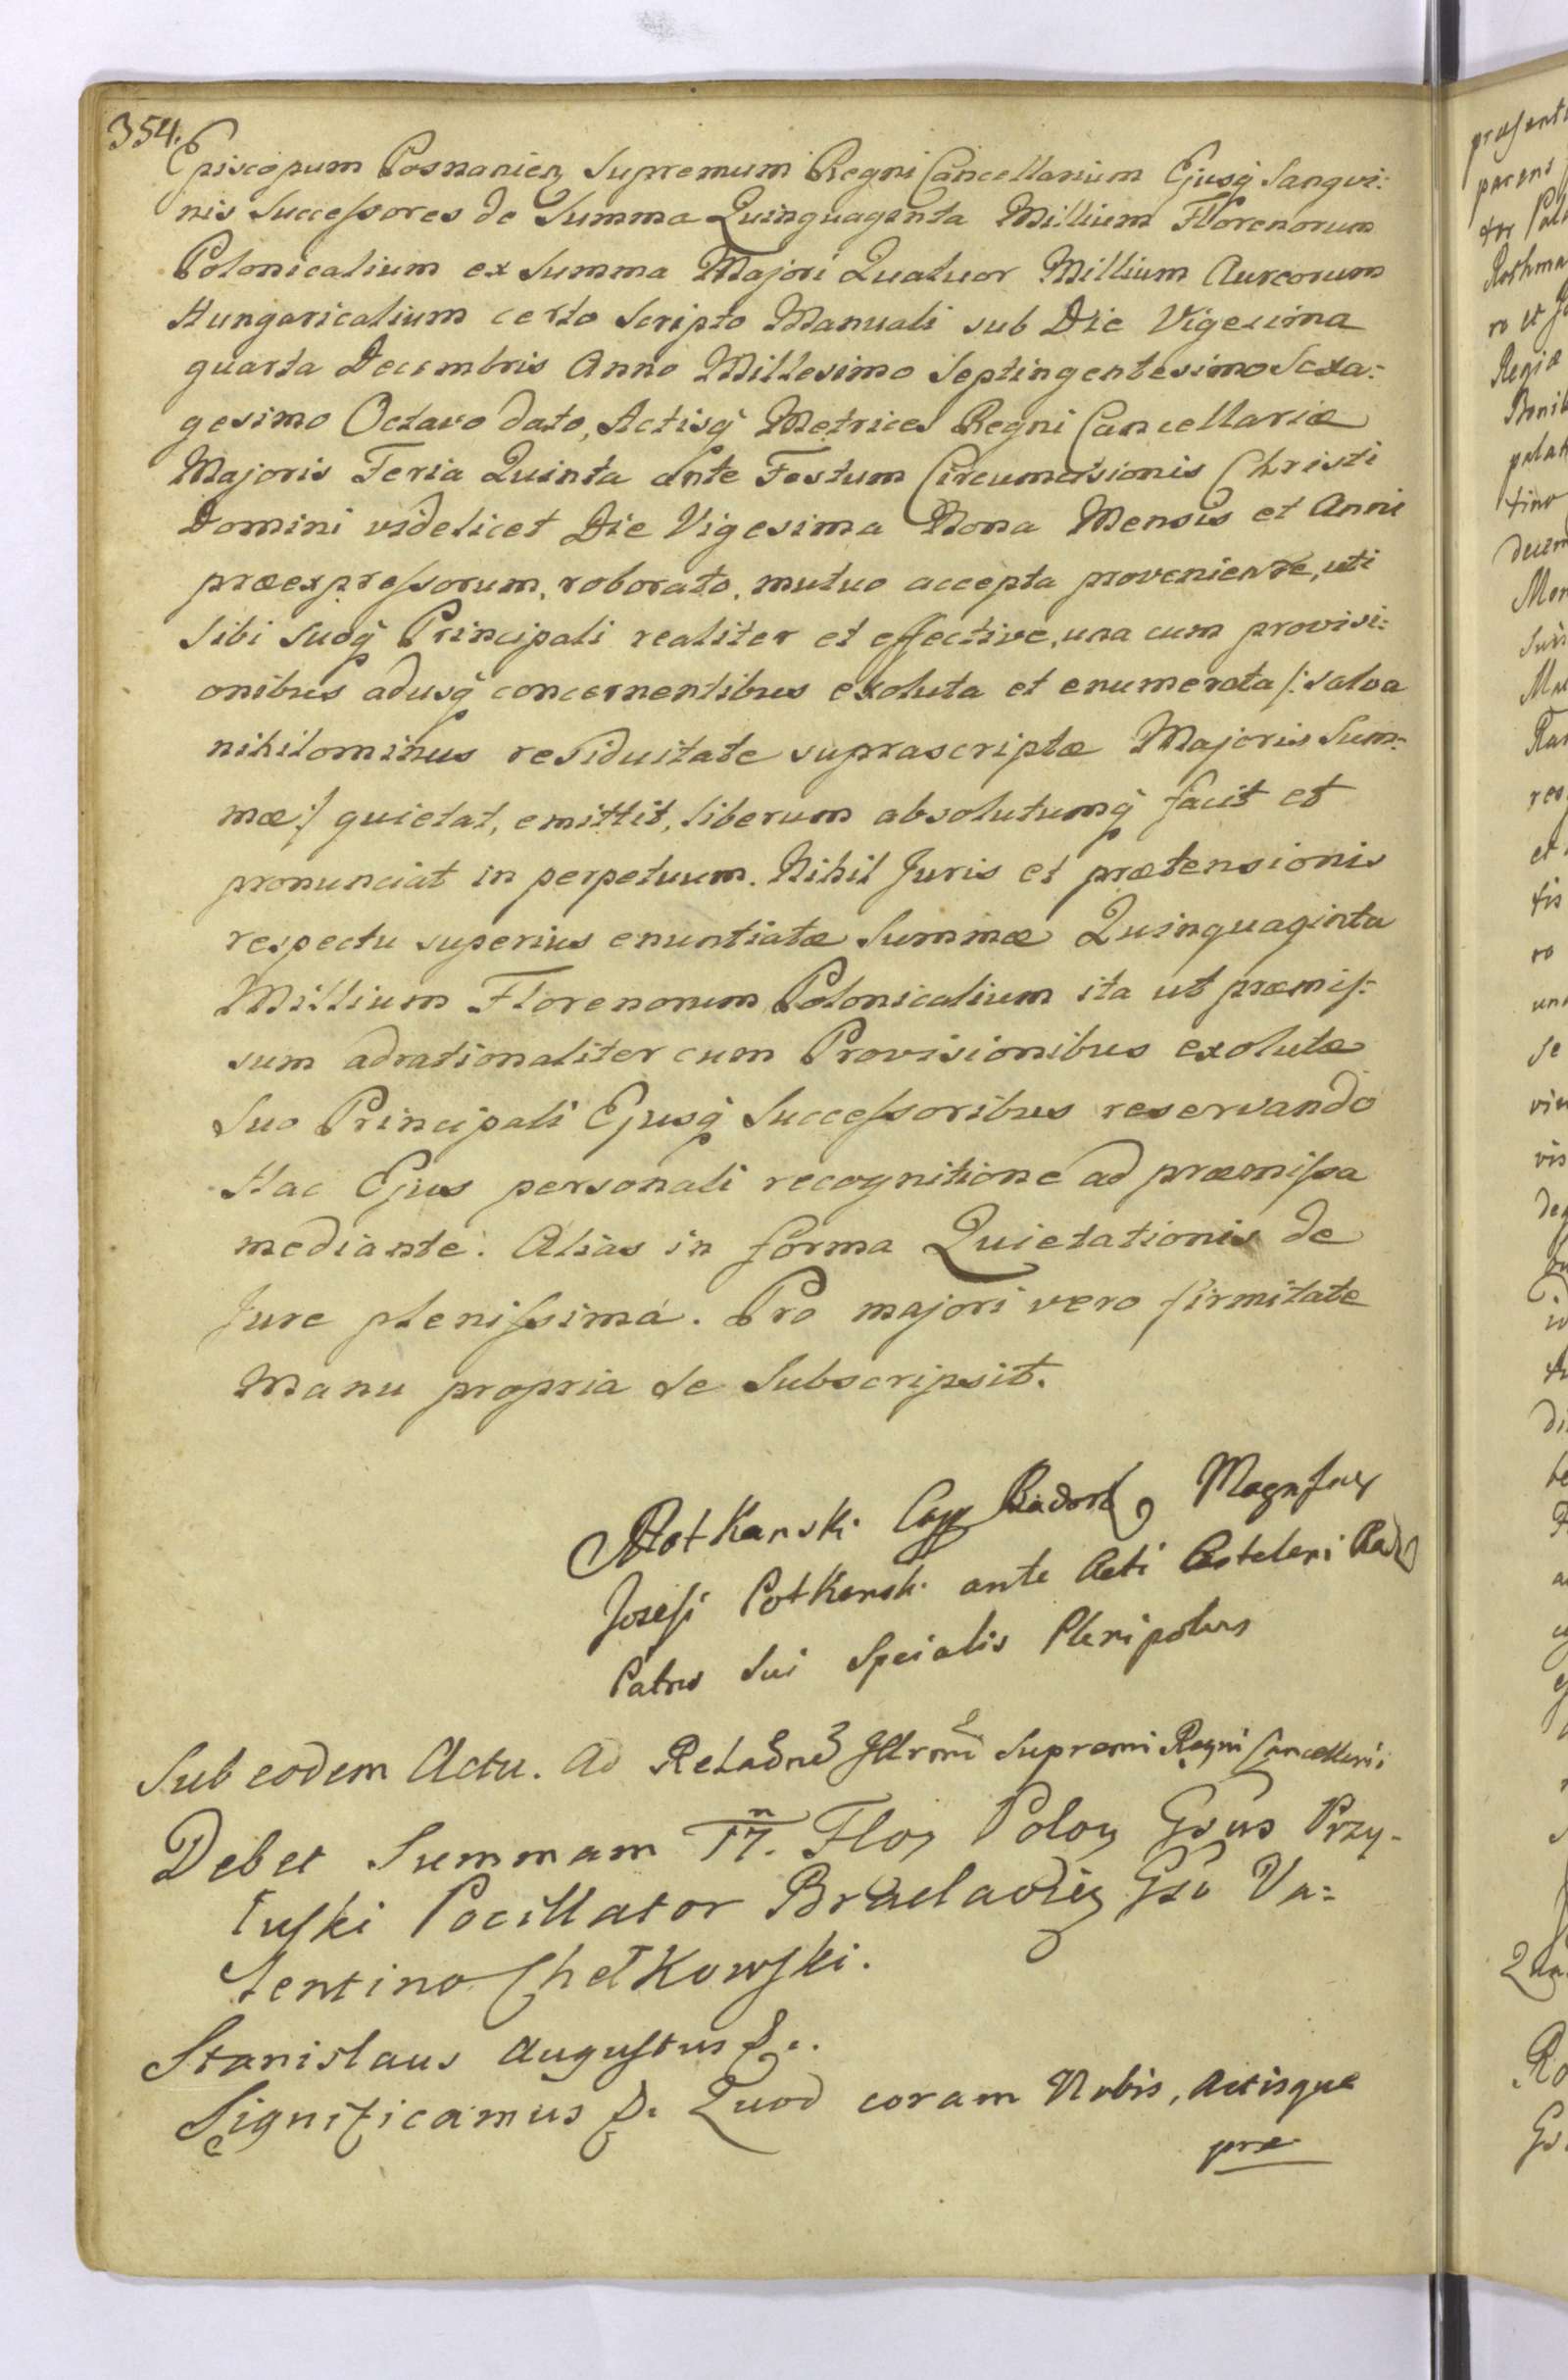 354.
Episcopum Posnanien Supremum Regni Cancellarium Ejusq̃ Sangvi:
nis Successores de Summa Quinquaginta Millium Florenorum
Polonicalium ex Summa Majori Quatuor Millium Aureorum
Hungaricalium certo Scripto Manuali sub Die Vigesima
quarta Decembris Anno Millesimo Septingentesimo Sexa:
gesimo Octavo dato, Actisq̃ Metrices Regni Cancellariæ
Majoris Feria Quinta ante Festum Circumcisionis Christi
Domini videlicet Die Vigesima Nona Mensis et Anni
præexpressorum, roborato, mutuo accepta proveniente, uti
Sibi Suoq̃ Principali realiter et effective, una cum provisi:
onibus adusq̃ concernentibus exoluta et enumerata /: salva
nihilominus residuitate suprascriptæ Majoris Sum:
mæ :/ quietat, emittit, liberum absolutumq̃ facit et
pronunciat in perpetuum. Nihil Juris et prætensionis
respectu superius enuntiatæ Summæ Quinquaginta
Millium Florenorum Polonicalium ita ut præmis:
sum adrationaliter cum Provisionibus exolutæ
Suo Principali Ejusq̃ Successoribus reservando
Hac Ejus personali recognitione ad præmissa
mediante. Alias in forma Quietationis de
Jure plenissima. Pro majori vero firmitate
Manu propria se Subscripsit.
Potkanski Magnfici
Josefi Potkanski ante Acti
Patris Sui Specialis Plenipotens
Sub eodem Actu. Ad Relãonẽ Illrmi Supremi Regni Cancellarii
Debet Summam 17. Flor Polon Gsus Przy-
łuski Pocillator Braclavien Gso Va:
lentino Chełkowski.
Stanislaus Augustus &.
Significamus &. Quod coram Nobis, Actisque
præ